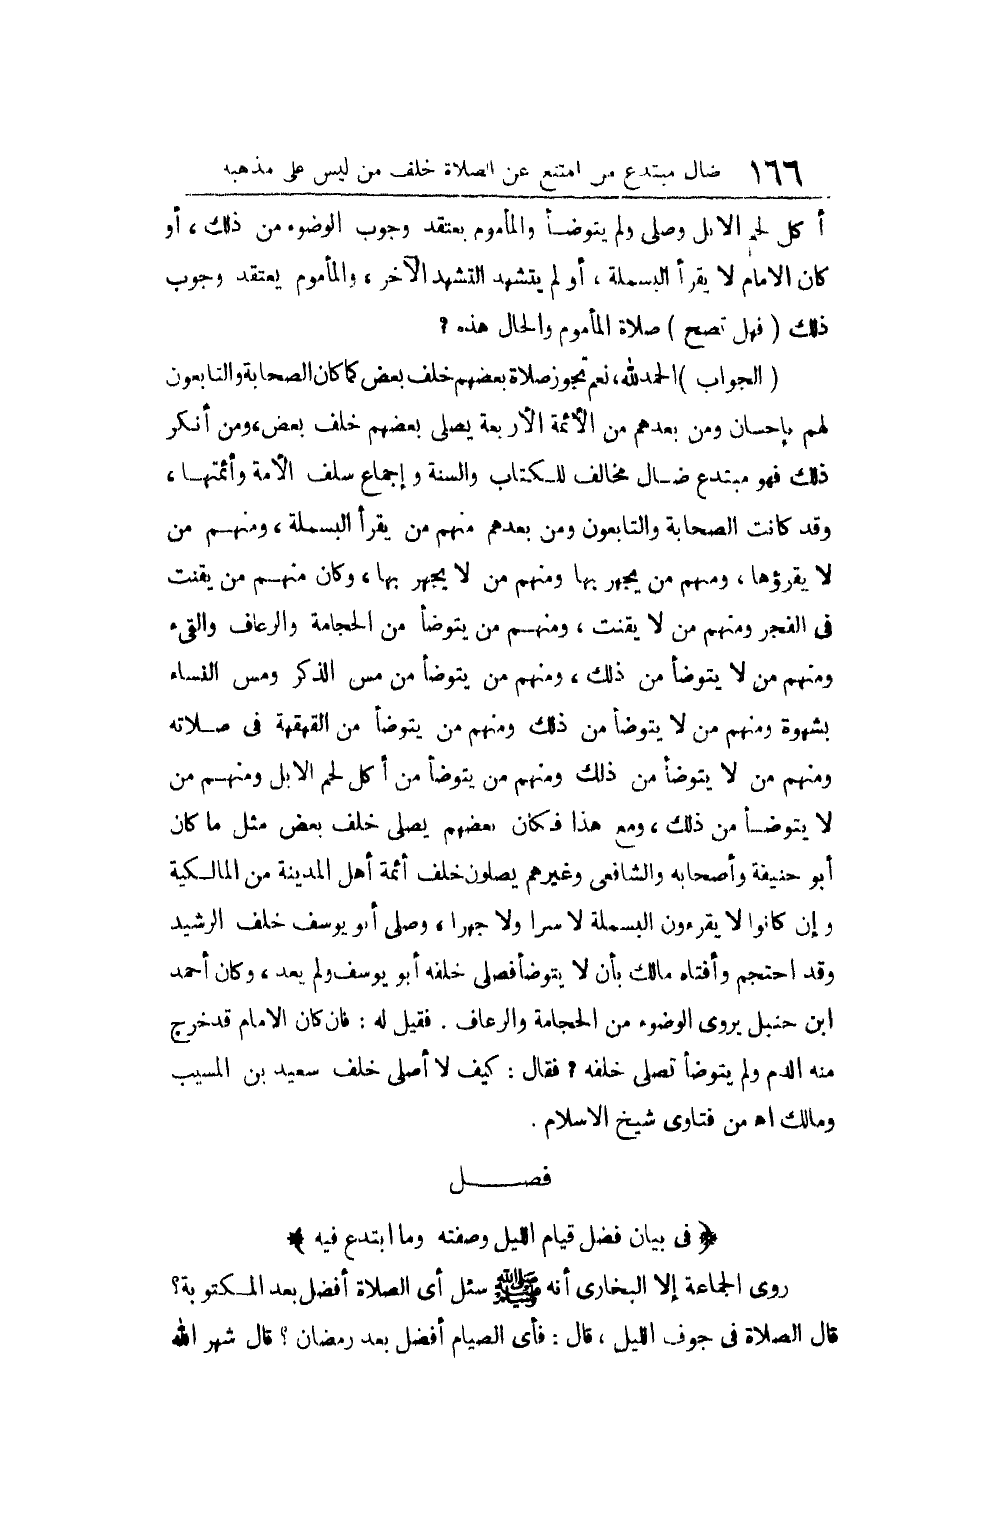 ١٦٦ ضال مبتدع من امتنع عن الصلاة خلف من ليس على مذهبه
أكل لحم الابل وصلى ولم يتوضأ والمأموم يعتقد وجوب الوضوء من ذلك ، أو
كان الامام لا يقرأ البسملة ، أو لم يتشهد التشهد الآخر ، والمأموم يعتقد وجوب
ذلك ( فهل تصح ) صلاة المأموم والحال هذه ؟
( الجواب ) الحمد لله ، نعم تجوز صلاة بعضهم خلف بعض كما كان الصحابة والتابعون
لهم بإحسان ومن بعدهم من الأئمة الأربعة يصلى بعضهم خلف بعض ، ومن أنكر
ذلك فهو مبتدع ضال مخالف للكتاب والسنة وإجماع سلف الأمة وأئمتها ،
وقد كانت الصحابة والتابعون ومن بعدهم منهم من يقرأ البسملة ، ومنهم من
لا يقرؤها ، ومنهم من يجهر بها ومنهم من لا يجهر بها ، وكان منهم من يقنت
فى الفجر ومنهم من لا يقنت ، ومنهم من يتوضأ من الحجامة والرعاف والقىء
ومنهم من لا يتوضأ من ذلك ، ومنهم من يتوضأ من مس الذكر ومس النساء
بشهوة ومنهم من لا يتوضأ من ذلك ومنهم من يتوضأ من القهقهة فى صلاته
ومنهم من لا يتوضأ من ذلك ومنهم من يتوضأ من أكل لحم الابل ومنهم من
لا يتوضأ من ذلك ، ومع هذا فكان بعضهم يصلى خلف بعض مثل ما كان
أبو حنيفة وأصحابه والشافعى وغيرهم يصلون خلف أئمة أهل المدينة من المالكية
وإن كانوا لا يقرءون البسملة لا سرا ولا جهرا ، وصلى أبو يوسف خلف الرشيد
وقد احتجم وأفتاه مالك بأن لا يتوضأ فصلى خلفه أبو يوسف ولم يعد ، وكان أحمد
ابن حنبل يروى الوضوء من الحجامة والرعاف . فقيل له : فان كان الامام قد خرج
منه الدم ولم يتوضأ تصلى خلفه ؟ فقال : كيف لا أصلى خلف سعيد بن المسيب
ومالك اه من فتاوى شيخ الاسلام .
فصـــل
﴿ فى بيان فضل قيام الليل وصفته وما ابتدع فيه ﴾
روى الجماعة إلا البخارى أنه ﷺ سئل أى الصلاة أفضل بعد المكتوبة ؟
قال الصلاة فى جوف الليل ، قال : فأى الصيام أفضل بعد رمضان ؟ قال شهر الله